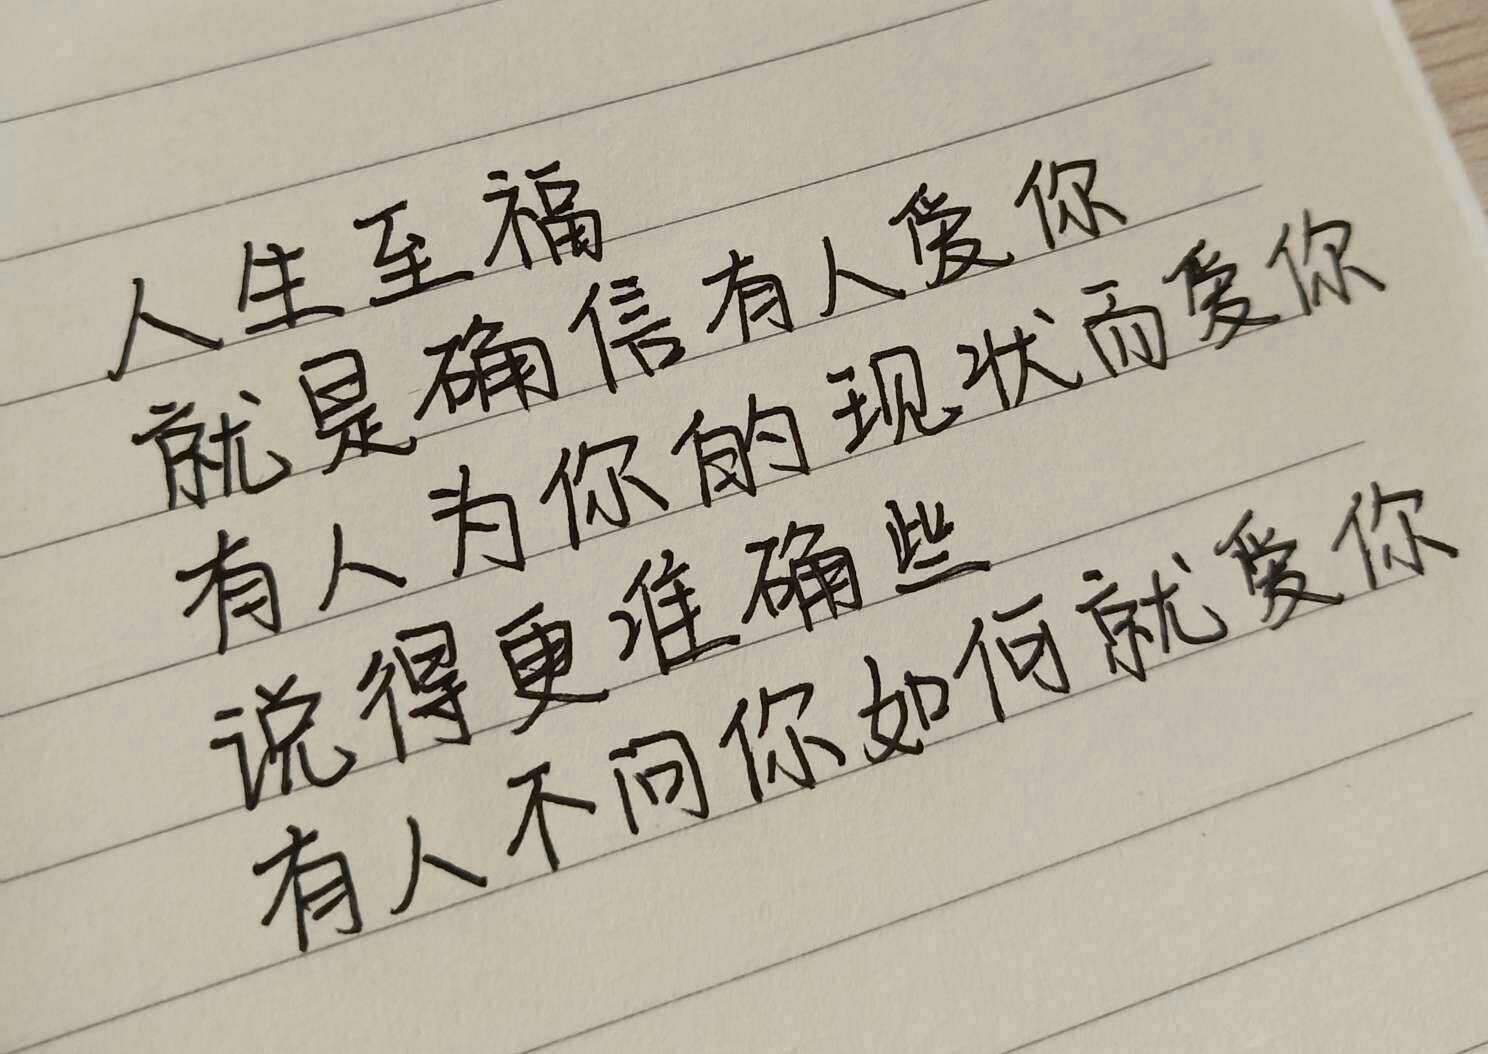 人生至福
就是确信有人爱你
有人为你的现状而爱你
说得更准确些
有人不问你如何就爱你